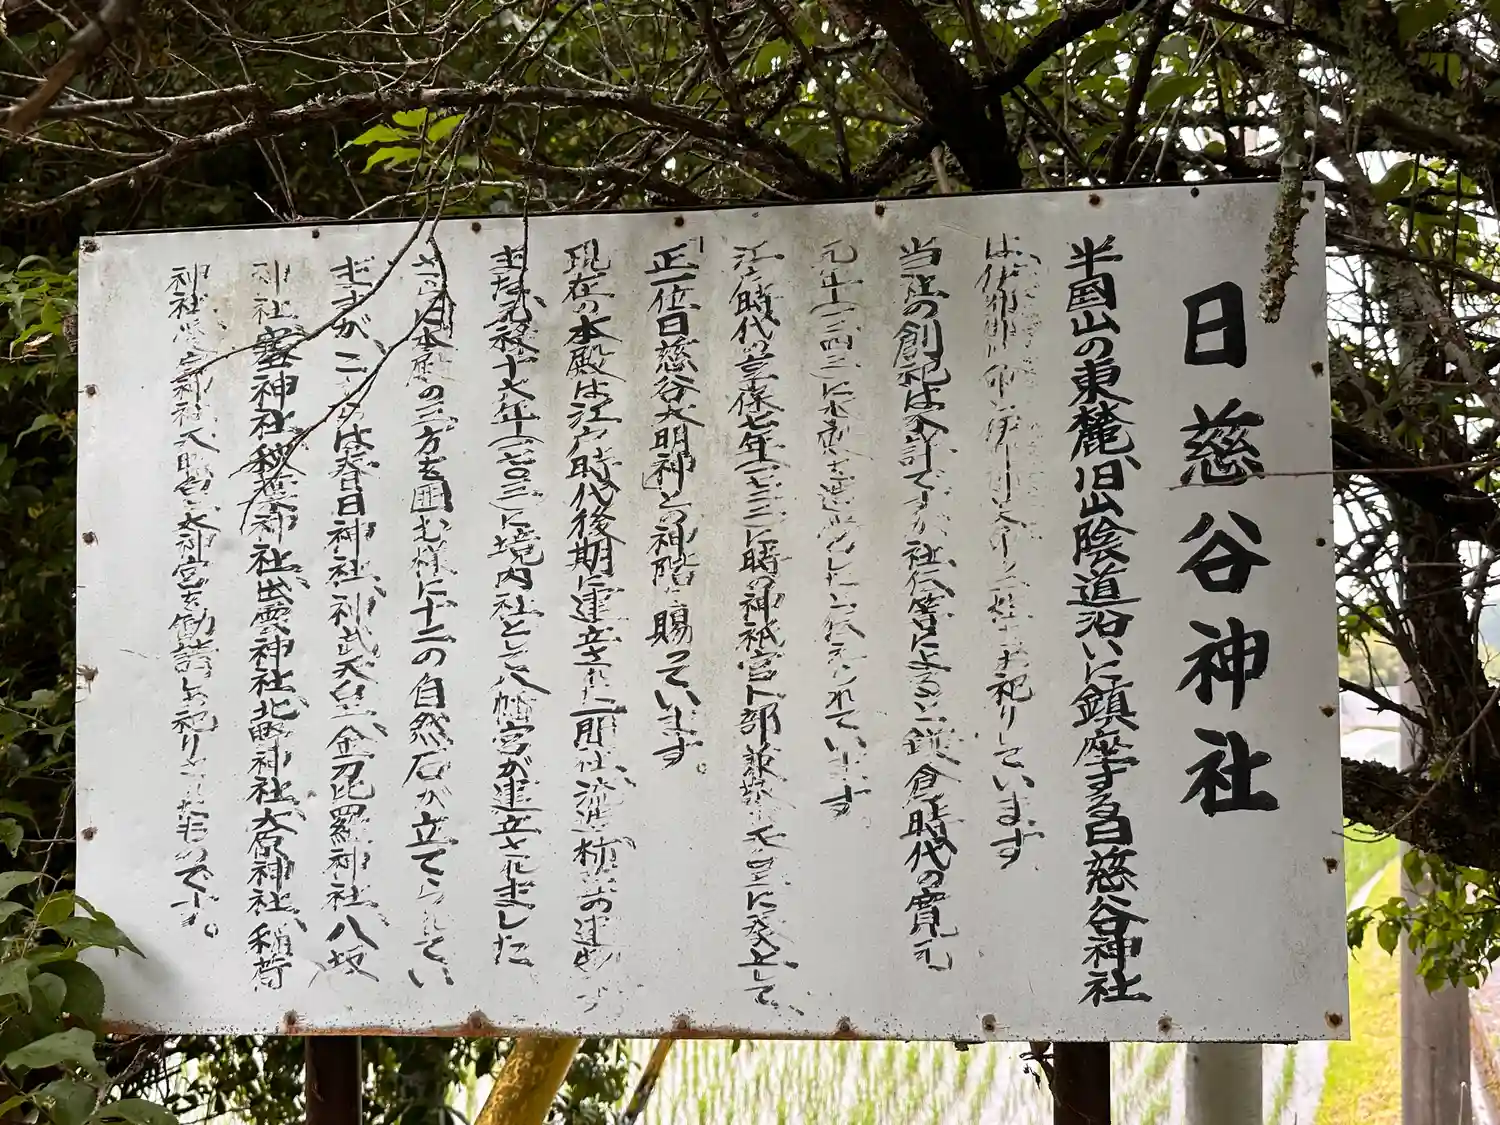 日慈谷神社
半国山の東麓、旧山陰道沿いに鎮座する日慈谷神社
は、お祀りしています
当社の創祀は不詳ですが、社伝等によると鎌倉時代の寛元
元年(一二四三)に本殿を造営したと伝えられています
江戸時代の享保七年(一七二二)に時の神祇官卜部兼敬が天皇に奏上して、
正一位日慈谷大明神との神階を賜っています。
現在の本殿は江戸時代後期に建立された一間社流造
また元禄十六年(一七〇三)に境内社として八幡宮が建立されました
さらに本殿の三方を囲む様に十二の自然石が立てられてい
ますが、これらは春日神社、神武天皇、金刀比羅神社、八坂
神社、神社、秋葉神社、出雲神社、北野神社、大原神社、稲荷
神社、神社、天照皇大神宮を勧請しお祀りされたものです。